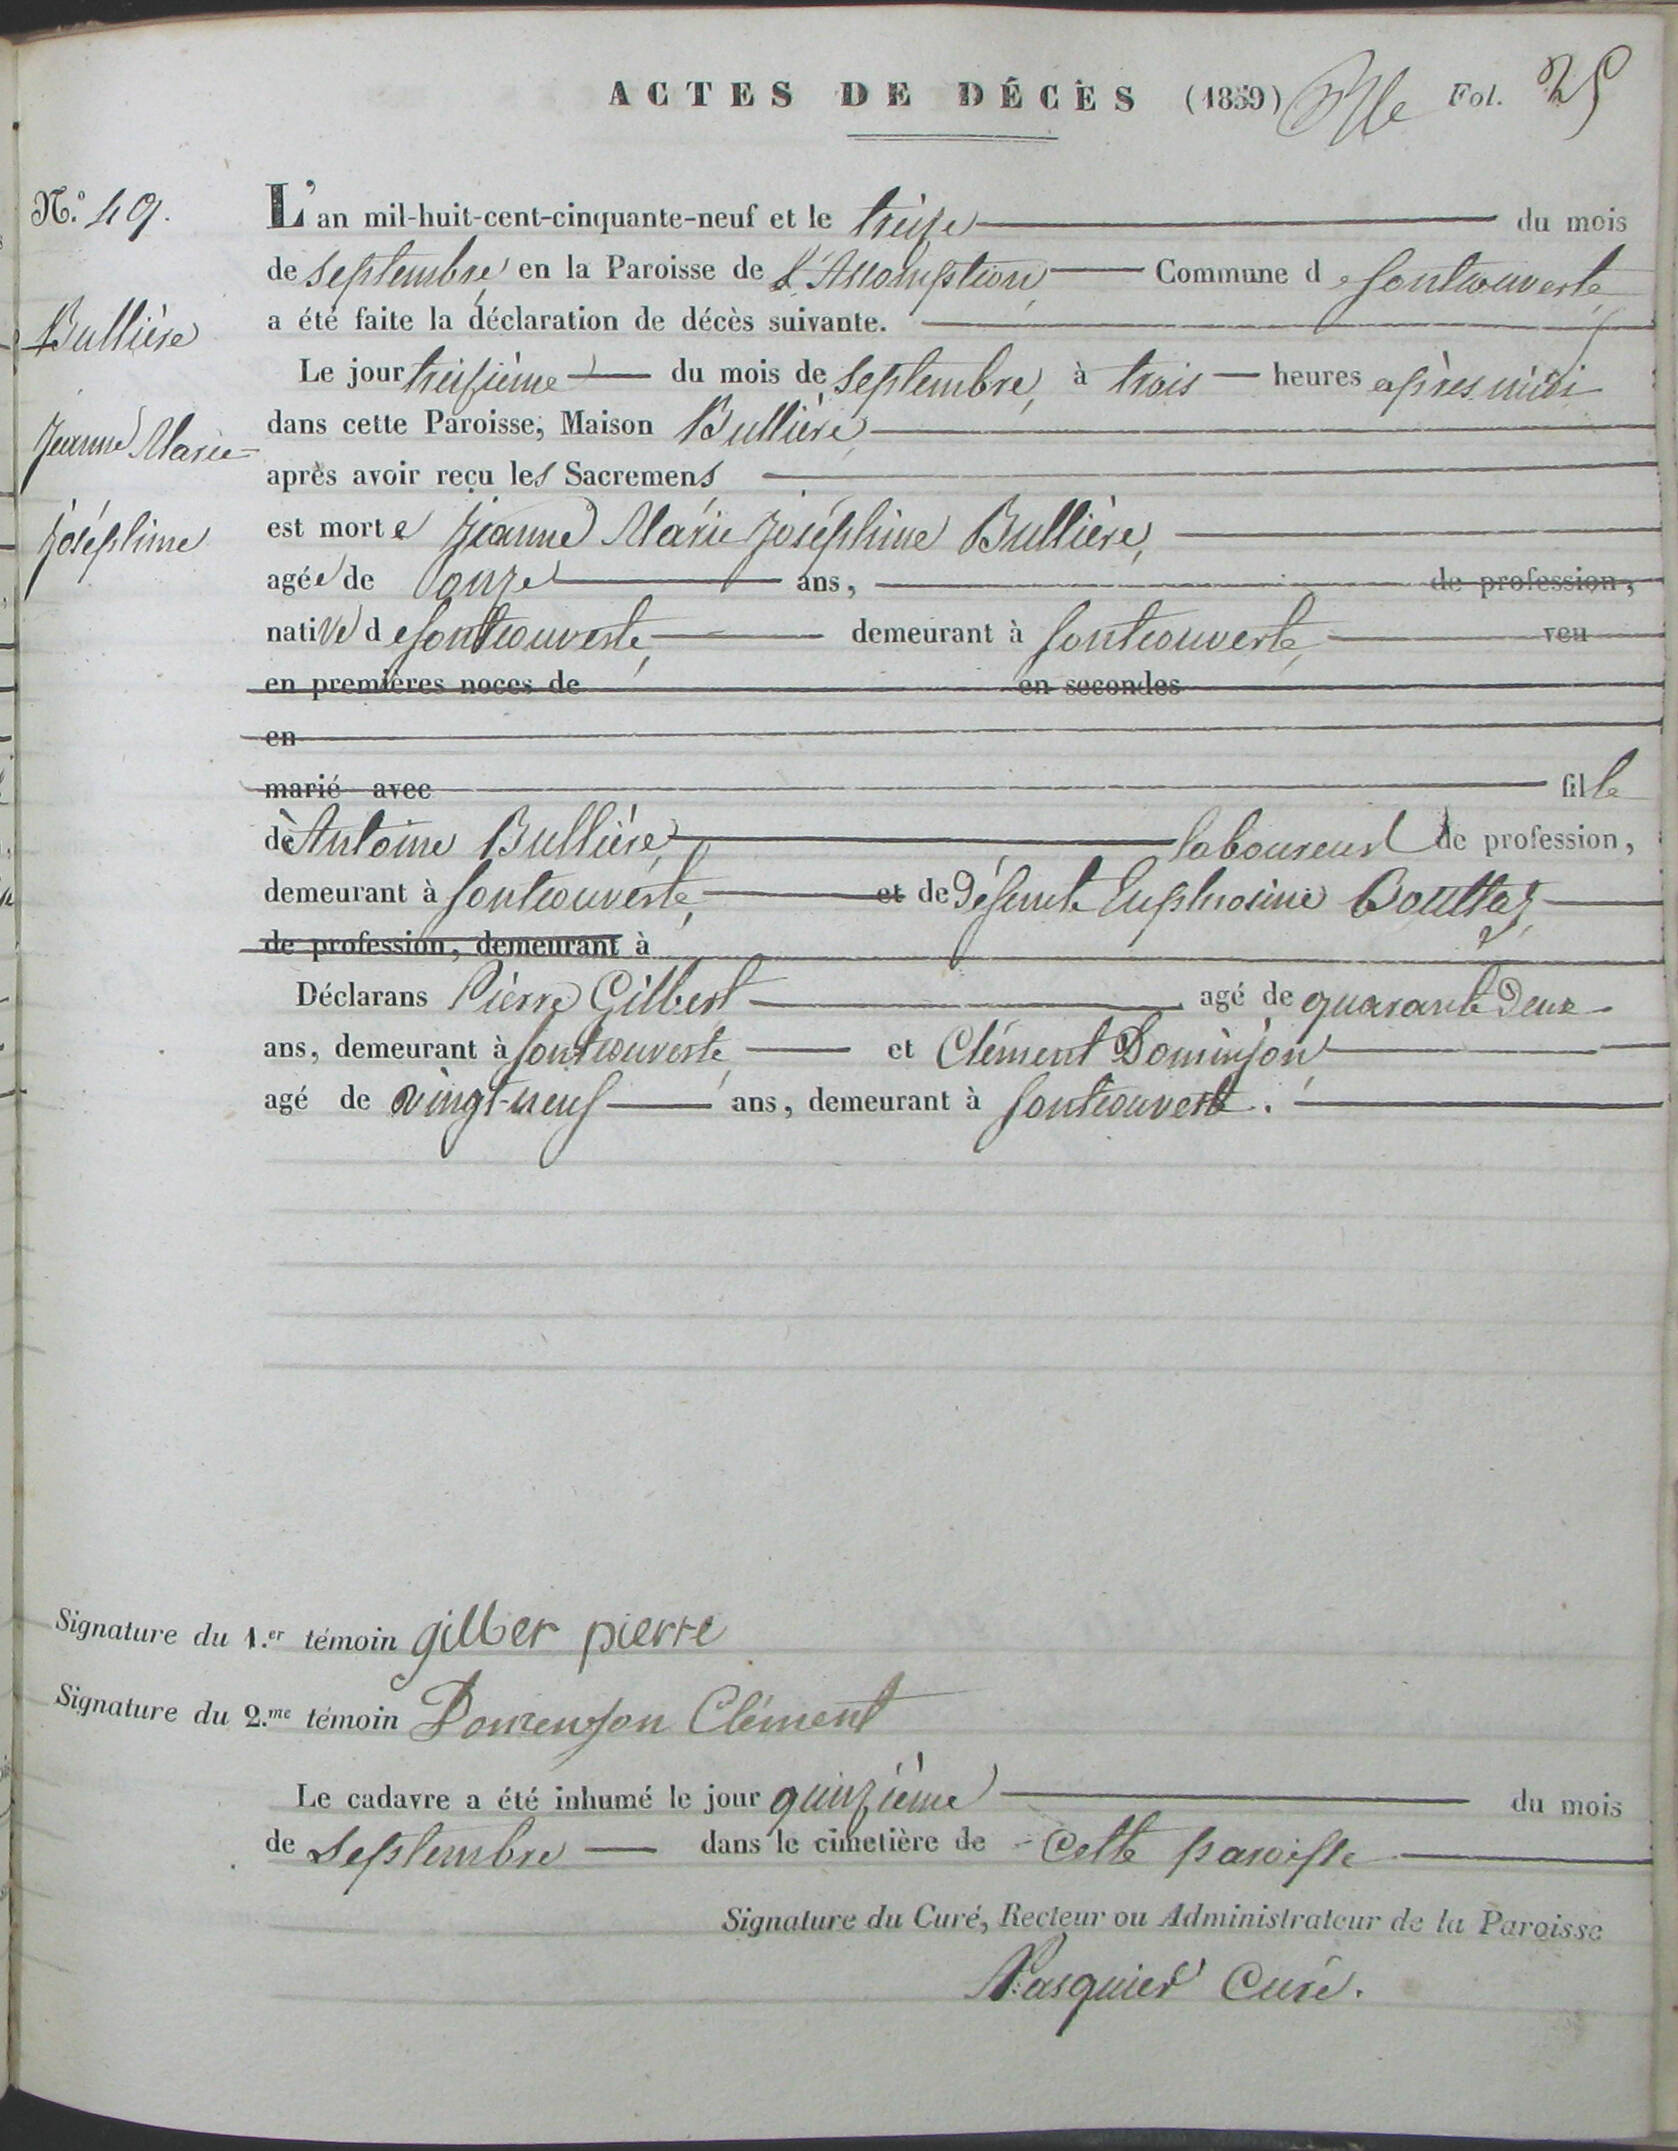 ACTES DE DÉCÈS (1859) Fol. 25
N.º 49.
L'an mil-huit-cent-cinquante-neuf et le treize du mois
de septembre en la Paroisse de L'Assomption Commune de fontcouverte
a été faite la déclaration de décès suivante.
Bullière
Le jour treizième du mois de septembre, à trois heures après midi
dans cette Paroisse, Maison Bullière
Jeanne Marie
après avoir reçu les Sacremens
Joséphine
est morte Jeanne Marie Joséphine Bullière,
agée de onze ans, de profession,
native de fontcouverte, demeurant à fontcouverte, veu
en premières noces de en secondes
en
marié avec fille
de Antoine Bullière laboureur de profession,
demeurant à fontcouverte, et de Défunte Euphrosine Bouttaz,
de profession, demeurant à
Déclarans Pierre Gilbert agé de quarante Deux
ans, demeurant à fontcouverte et Clément Dominjon
agé de vingt-neuf ans, demeurant à fontcouverte.
Signature du 1.er témoin gilber pierre
Signature du 2.me témoin Domenjon Clément
Le cadavre a été inhumé le jour quinzième du mois
de septembre dans le cimetière de cette paroisse
Signature du Curé, Recteur ou Administrateur de la Paroisse
Pasquier Curé.